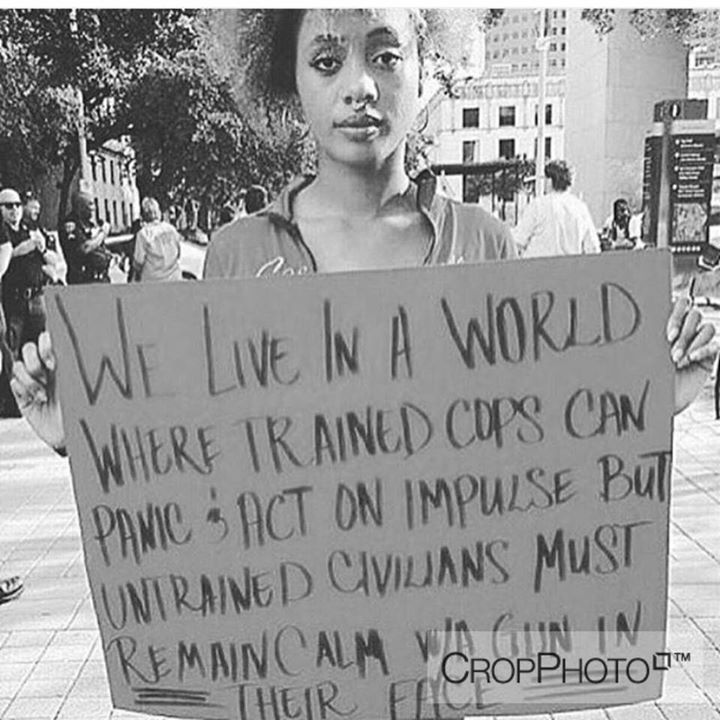 WE LIVE IN A WORLD
WHERE TRAINED COPS CAN
PANIC & ACT ON IMPULSE BUT
UNTRAINED CIVILIANS MUST
REMAIN CALM W/A GUN IN
THEIR FACE
CROPPHOTO™